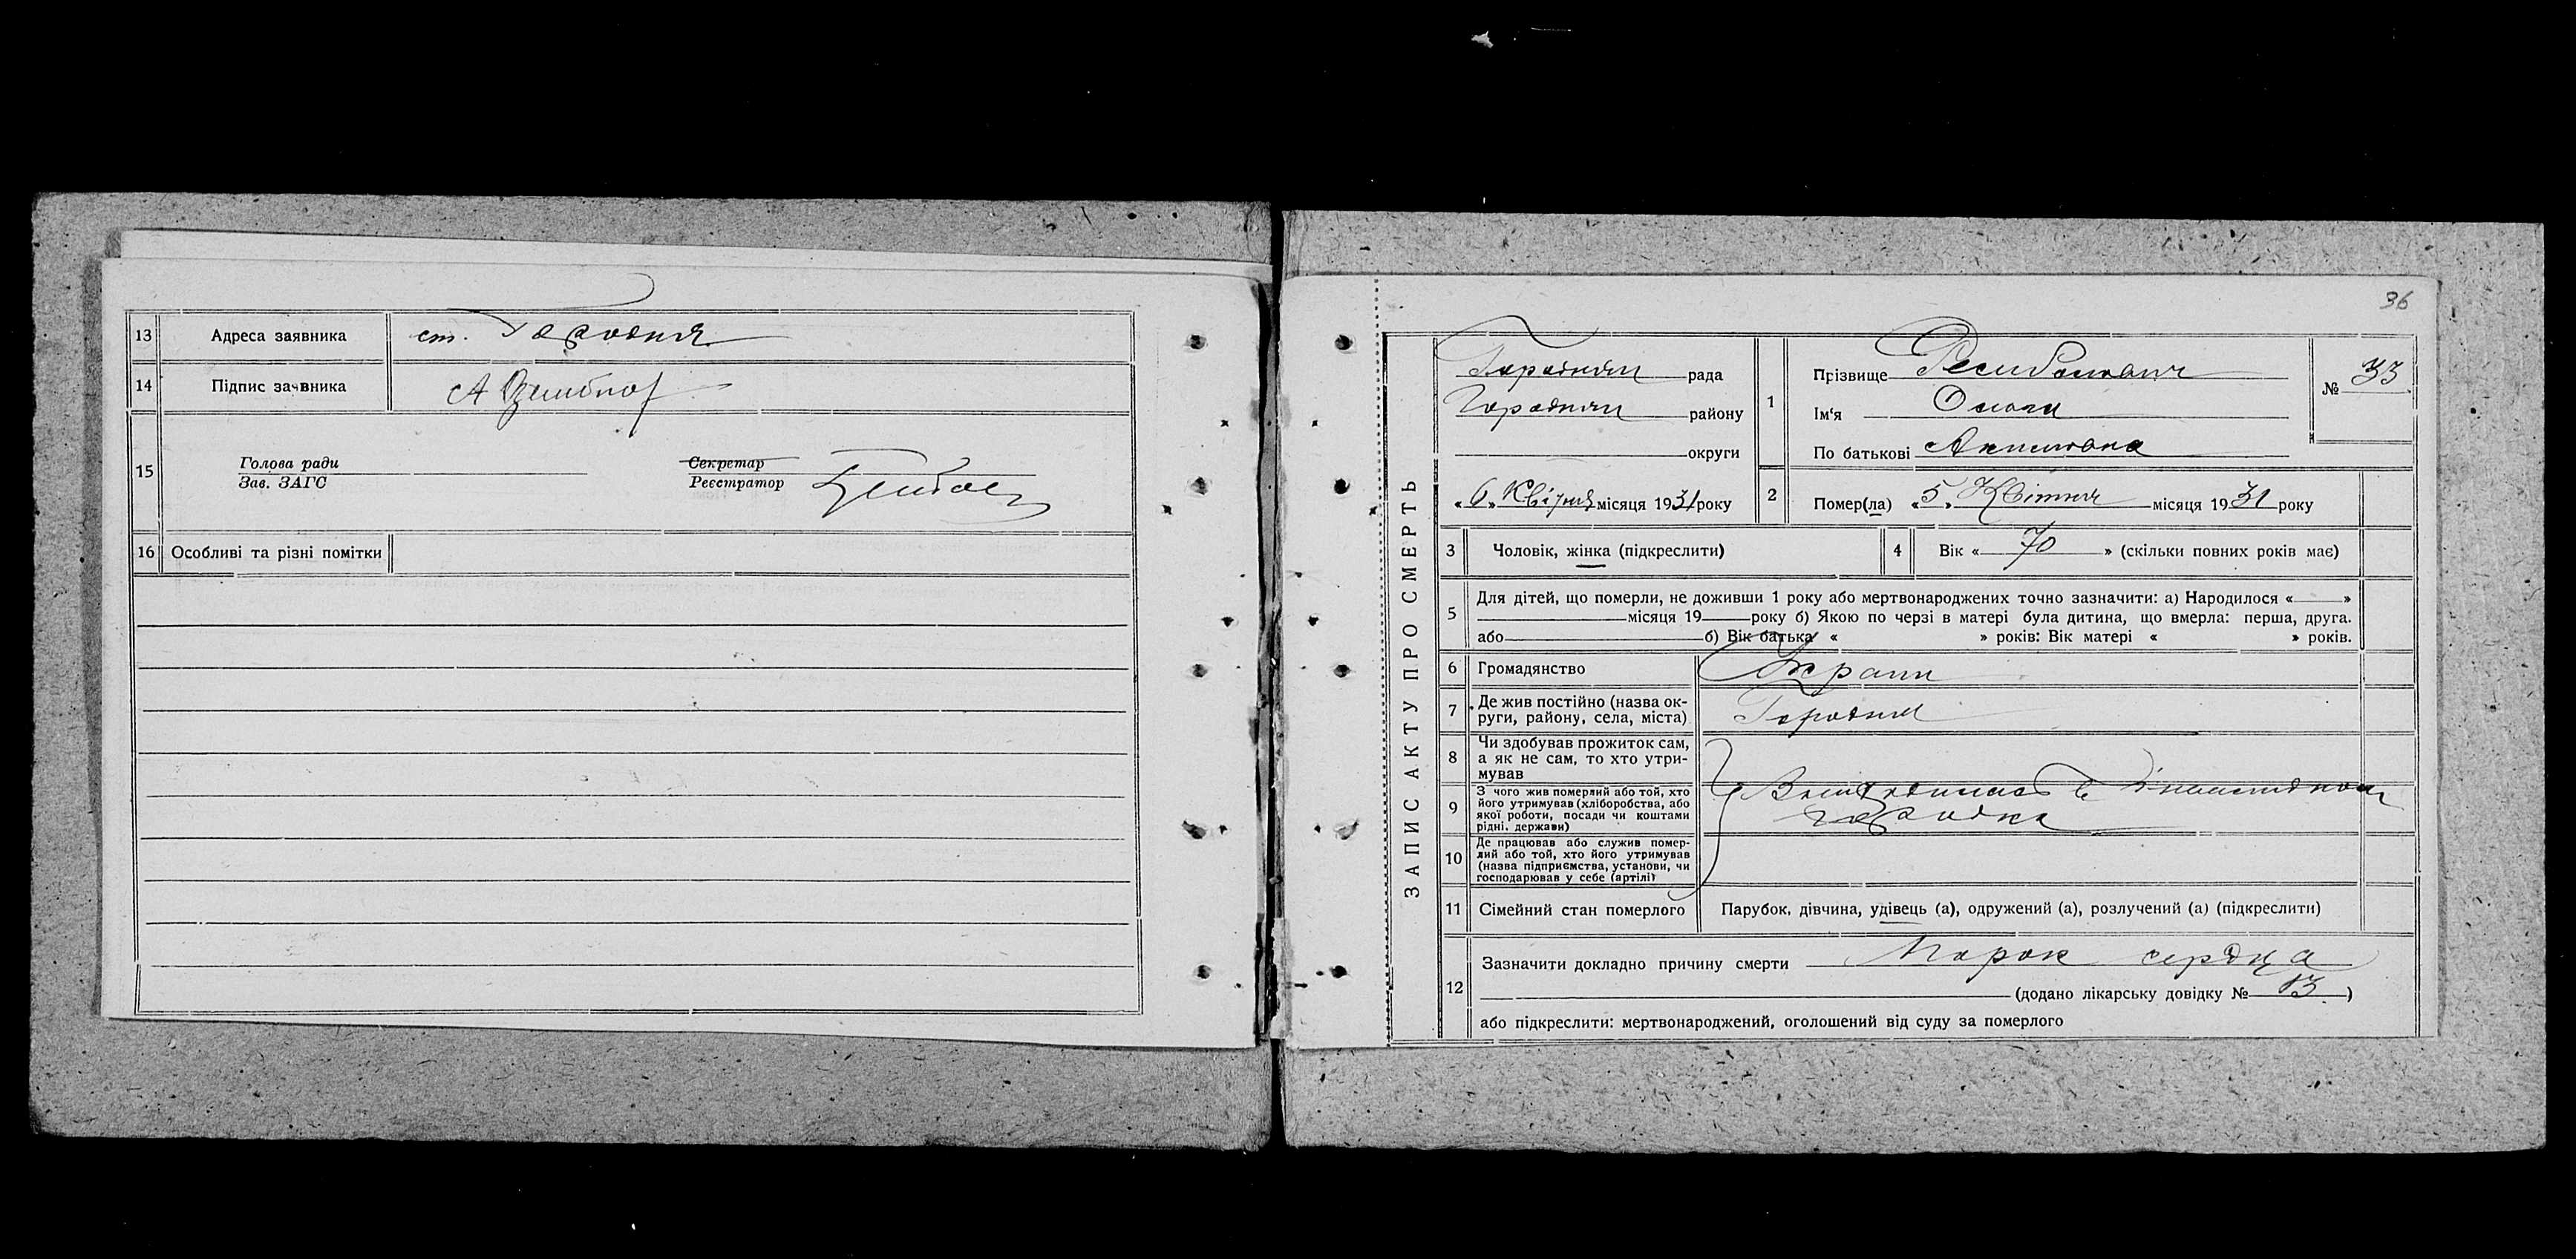 13 Адреса заявника ст. Городня
14 Підпис заявника А
15 Голова ради
Зав. ЗАГС
Секретар
Реєстратор
16 Особливі та різні помітки
36
ЗАПИС АКТУ ПРО СМЕРТЬ
Городнян рада
Городнян району
округи
«6» Квітня місяця 1931 року
1 Прізвище
Ім'я
По батькові
№ 33
2 Помер(ла) «5» Квітня місяця 1931 року
3 Чоловік, жінка (підкреслити)
4 Вік «70» (скільки повних років має)
5 Для дітей, що померли, не доживши 1 року або мертвонароджених точно зазначити: а) Народилося « »
місяця 19 року б) Якою по черзі в матері була дитина, що вмерла: перша, друга.
або б) Вік батька « » років: Вік матері « » років.
6 Громадянство Украин
7 Де жив постійно (назва округи, району, села, міста) Городня
8 Чи здобував прожиток сам,
а як не сам, то хто утри-
мував
9 З чого жив померлий або той, хто
його утримував (хліборобства, або
якої роботи, посади чи коштами
рідні, держави)
10 Де працював або служив помер-
лий або той, хто його утримував
(назва підприємства, установи, чи
господарював у себе (артілі)
11 Сімейний стан померлого Парубок, дівчина, удівець (а), одружений (а), розлучений (а) (підкреслити)
12 Зазначити докладно причину смерти Порок сердца
(додано лікарську довідку № 13)
або підкреслити: мертвонароджений, оголошений від суду за померлого